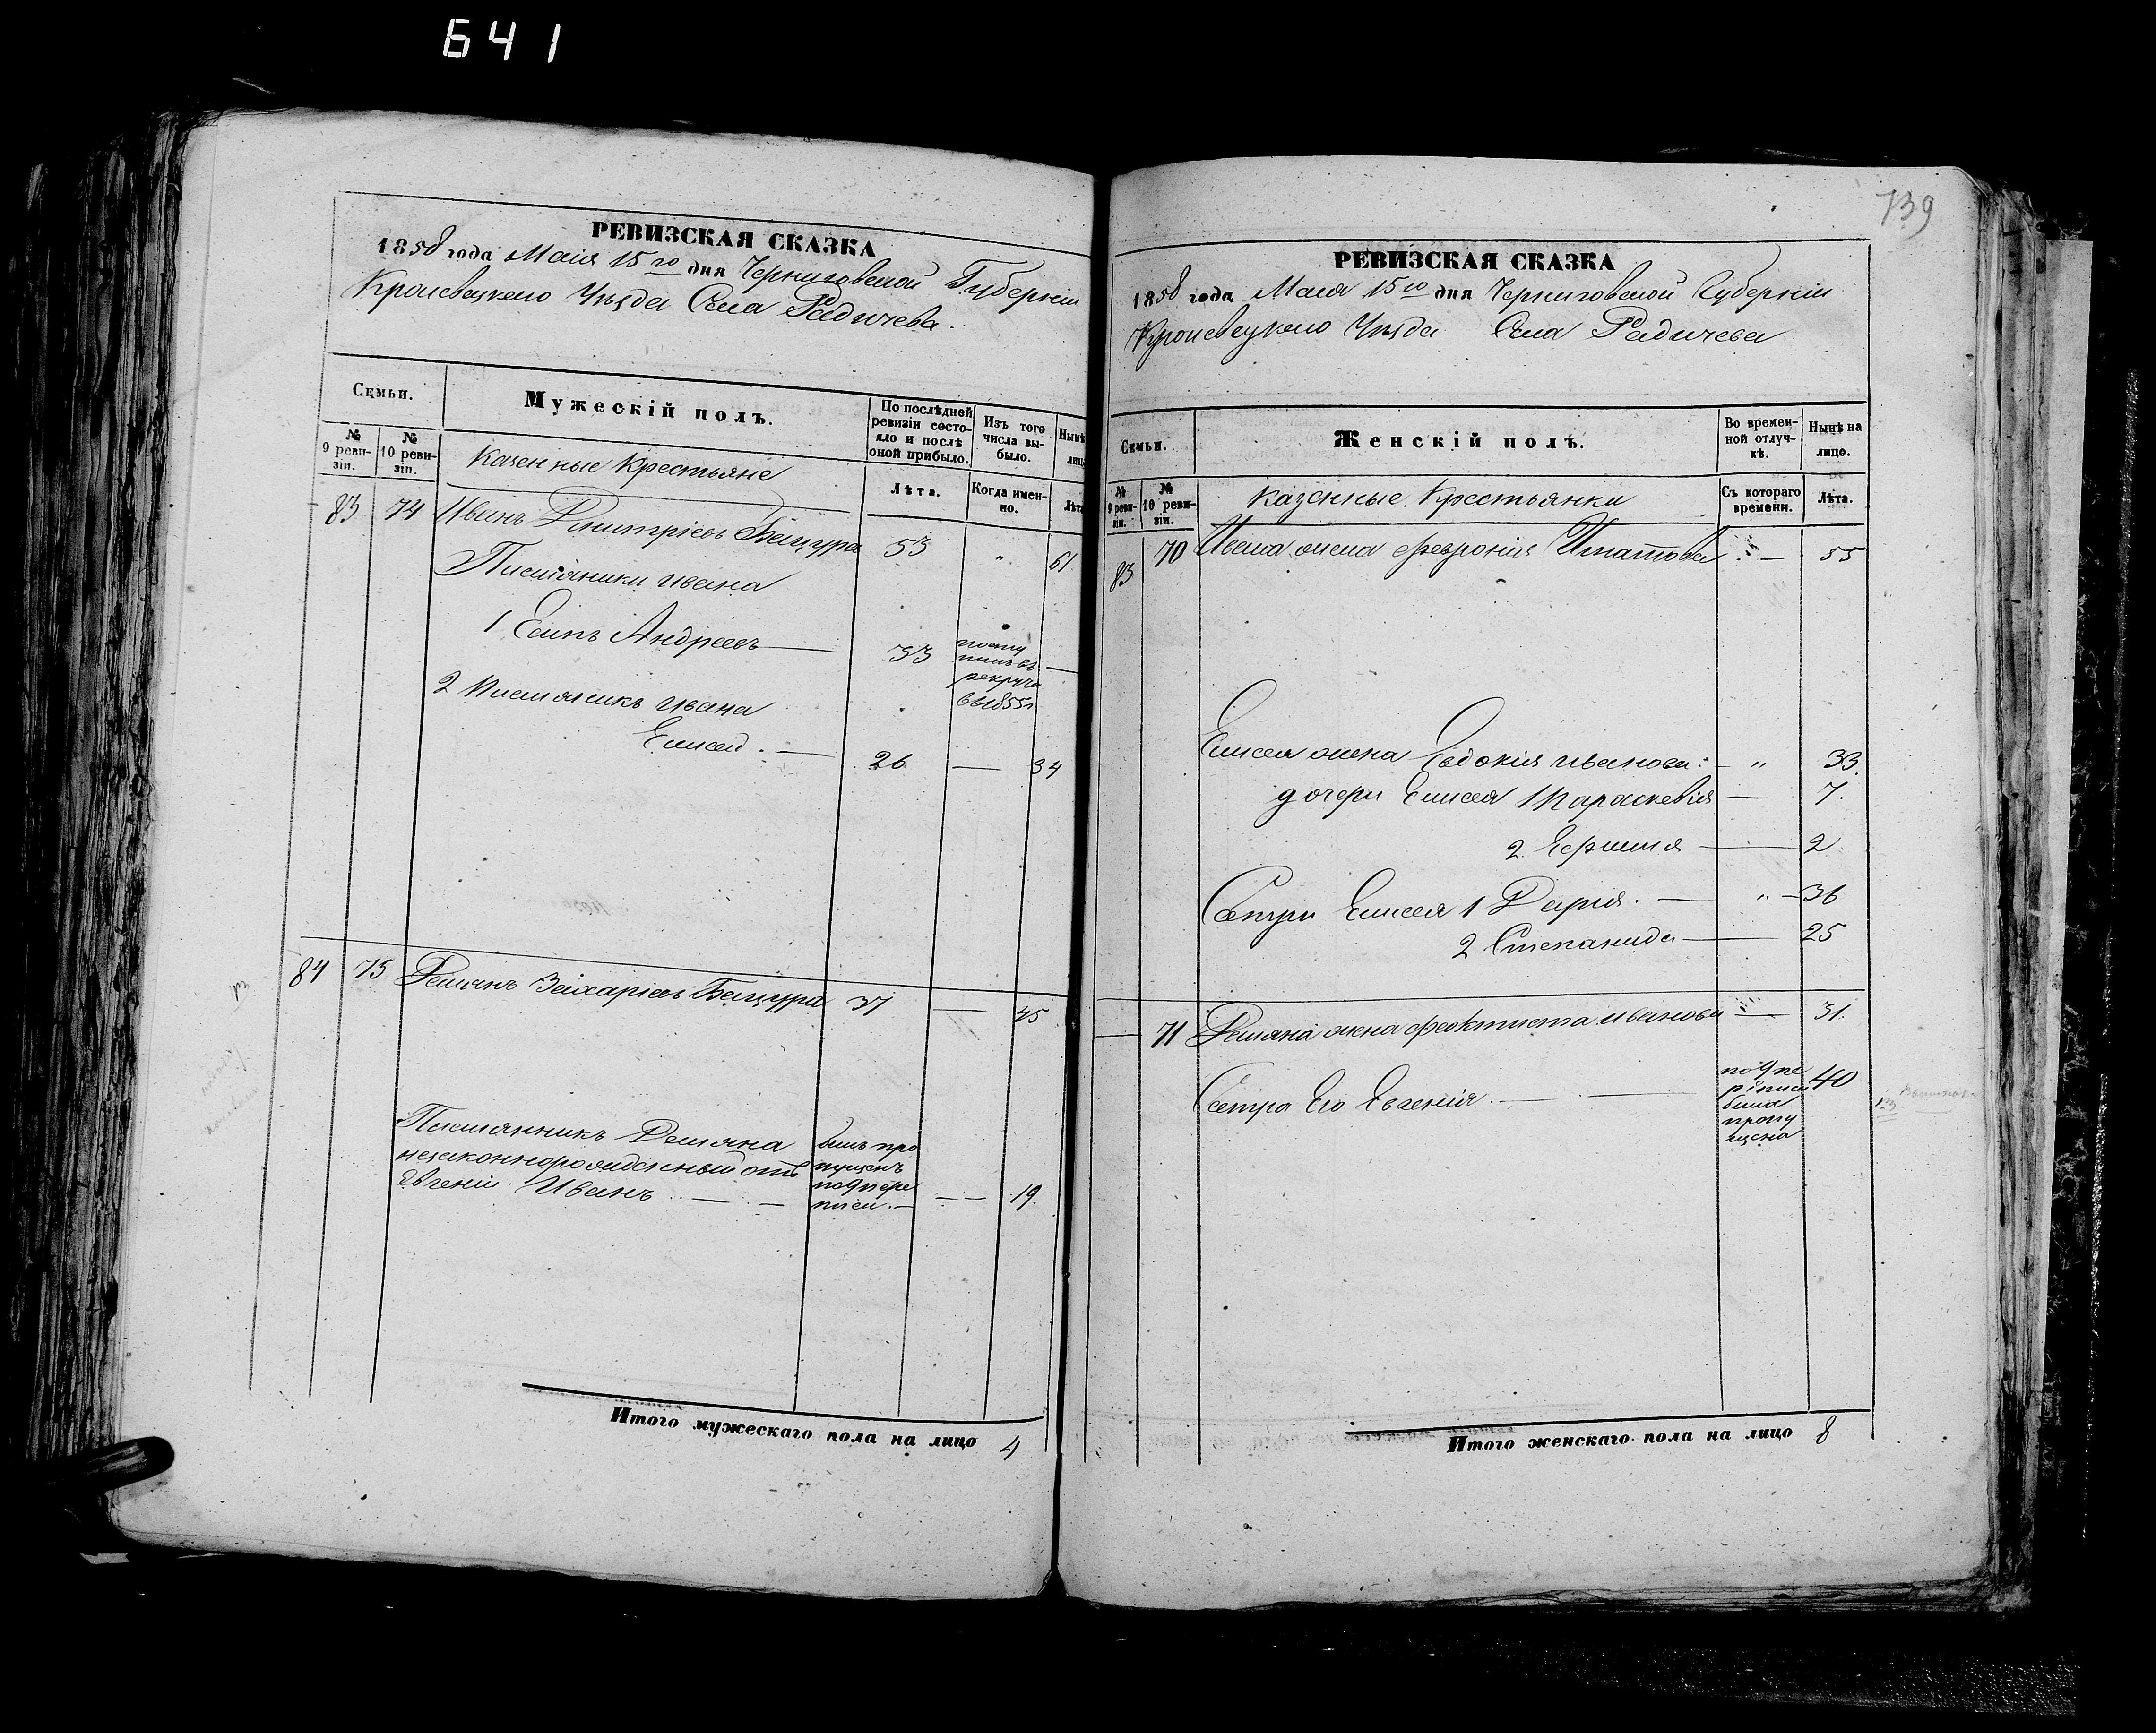 641
РЕВИЗСКАЯ СКАЗКА
1858 года Маія 15го дня Черниговской Губерніи
Кролевецкаго Уѣзда Села Радичева.
Семьи.
Мужескій полъ.
По послѣдней ревизіи состояло и послѣ оной прибыло.
Изъ того числа выбыло.
№ 9 ревизіи.
№ 10 ревизіи.
Казенные Крестьяне
Лѣта.
Когда именно.
83 74 Иванъ Дмитріевъ Бацура 53 " 61
Племяники Ивана
1 Есипъ Андреевъ — 33 поступилъ въ рекруты въ 1855 г —
2 Племяникъ Ивана
Елисей. — 26 — 34
84 75 Демянъ Захаріевъ Бацура 37 — 45
Племянникъ Демяна
незаконнорожденный отъ
Евгеніи Иванъ — — былъ пропущенъ по 9 переписи. — — — 19.
Итого мужескаго пола на лицо 4
739
РЕВИЗСКАЯ СКАЗКА
1858 года Маія 15го дня Черниговской Губерніи
Кролевецкаго Уѣзда Села Радичева
Семьи.
Женскій полъ.
Во временной отлучкѣ.
Нынѣ на лицо.
№ 9 ревизіи.
№ 10 ревизіи.
Казенные Крестьянки
Съ котораго времени.
Лѣта.
83 70 Ивана жена Февронія Ипатова — 55
Елисея жена Евдокія Иванова — " 33.
дочери Елисея 1 Параскевія — 7.
2 Ефимія — 2
Сестры Елисея 1 Дарія. — " — 36
2 Степанида — 25
— 71 Демяна жена Феоктиста Иванова — 31.
Сестра Его Евгенія. — — по 9 переписи была пропущена 40
Итого женскаго пола на лицо 8